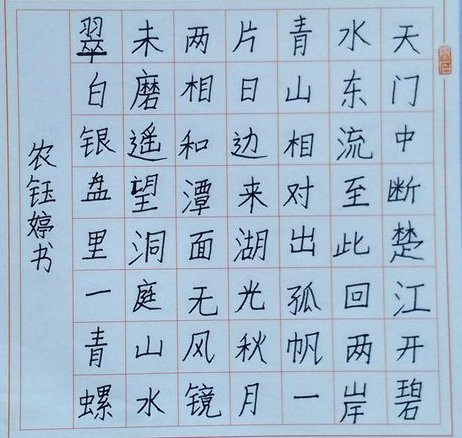 天门中断楚江开碧
水东流至此回两岸
青山相对出孤帆一
片日边来湖光秋月
两相和潭面无风镜
未磨遥望洞庭山水
翠白银盘里一青螺
农钰婷书